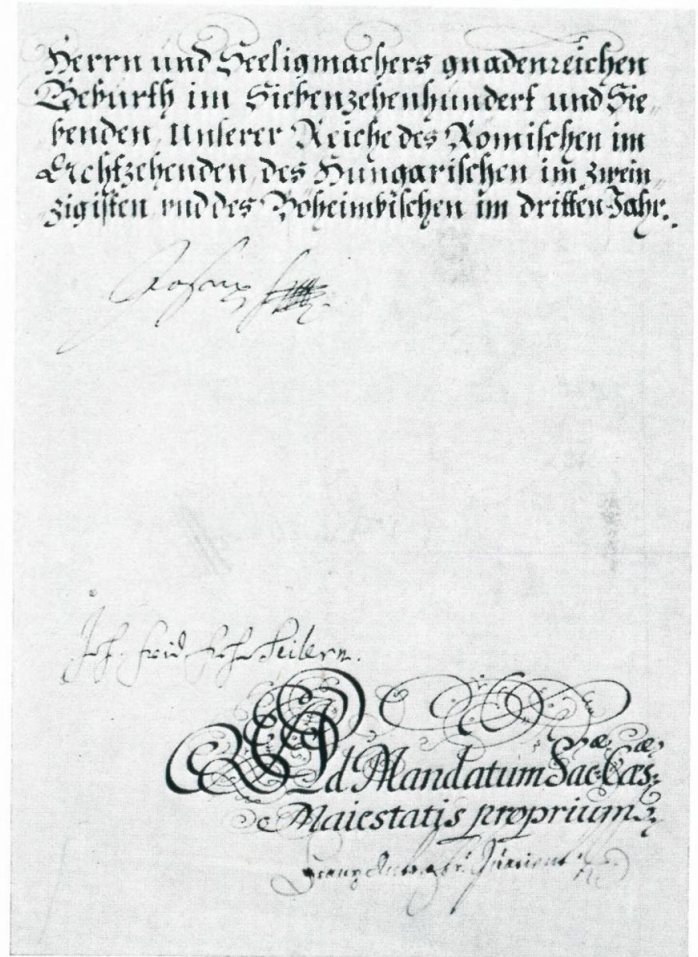 Herrn und Seeligmachers gnadenreichen
Geburth im Siebenzehenhundert und Sie¬
benden, Unserer Reiche des Römischen im
Achtzehenden, des Hungarischen im zwein¬
zigisten und des Böheimbischen im dritten Jahr.
Joseph
Joh. Frid. Seilern.
Ad Mandatum Sac:æ Cæs:æ
Maiestatis proprium
Franz